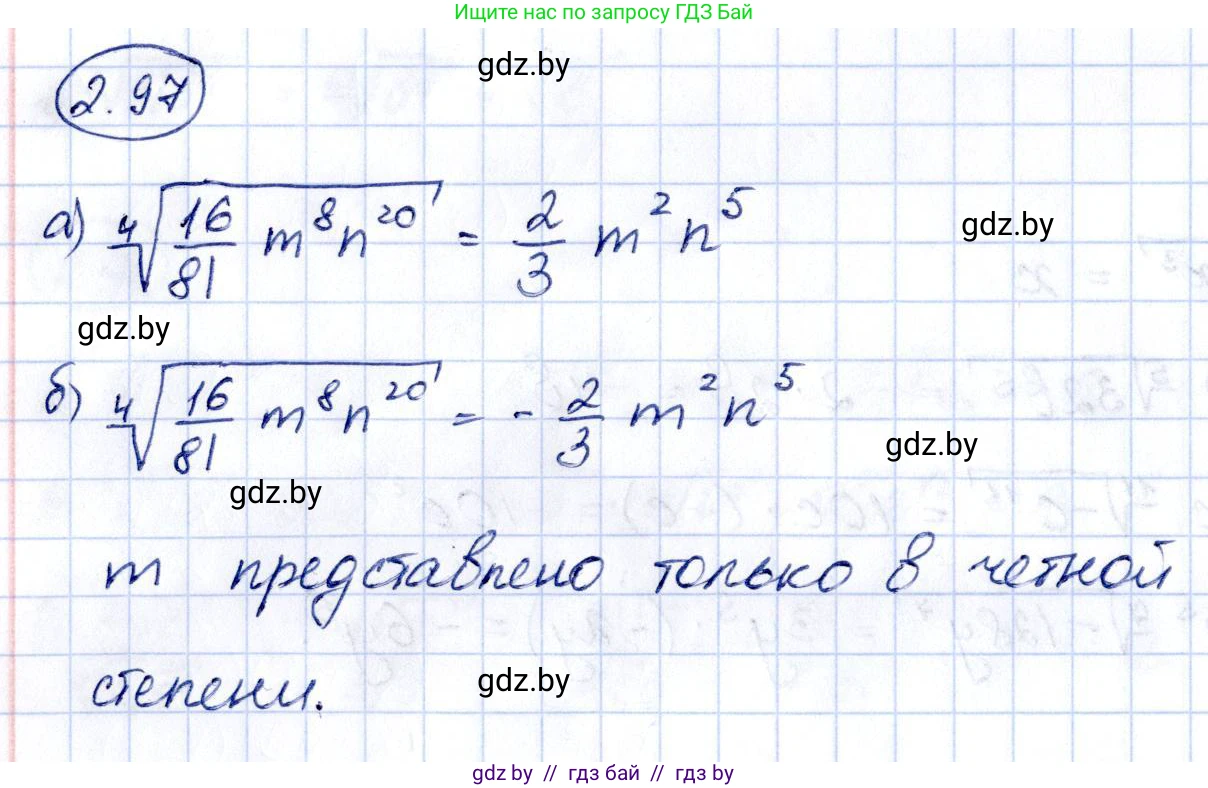 Ищите нас по запросу ГДЗ Бай
gdz.by
2.97
а) ⁴√(16/81 m⁸n²⁰) = 2/3 m²n⁵
gdz.by
gdz.by
б) ⁴√(16/81 m⁸n²⁰) = - 2/3 m²n⁵
gdz.by
gdz.by
m представлено только в четной
степени.
gdz.by
gdz by // гдз бай // гдз by